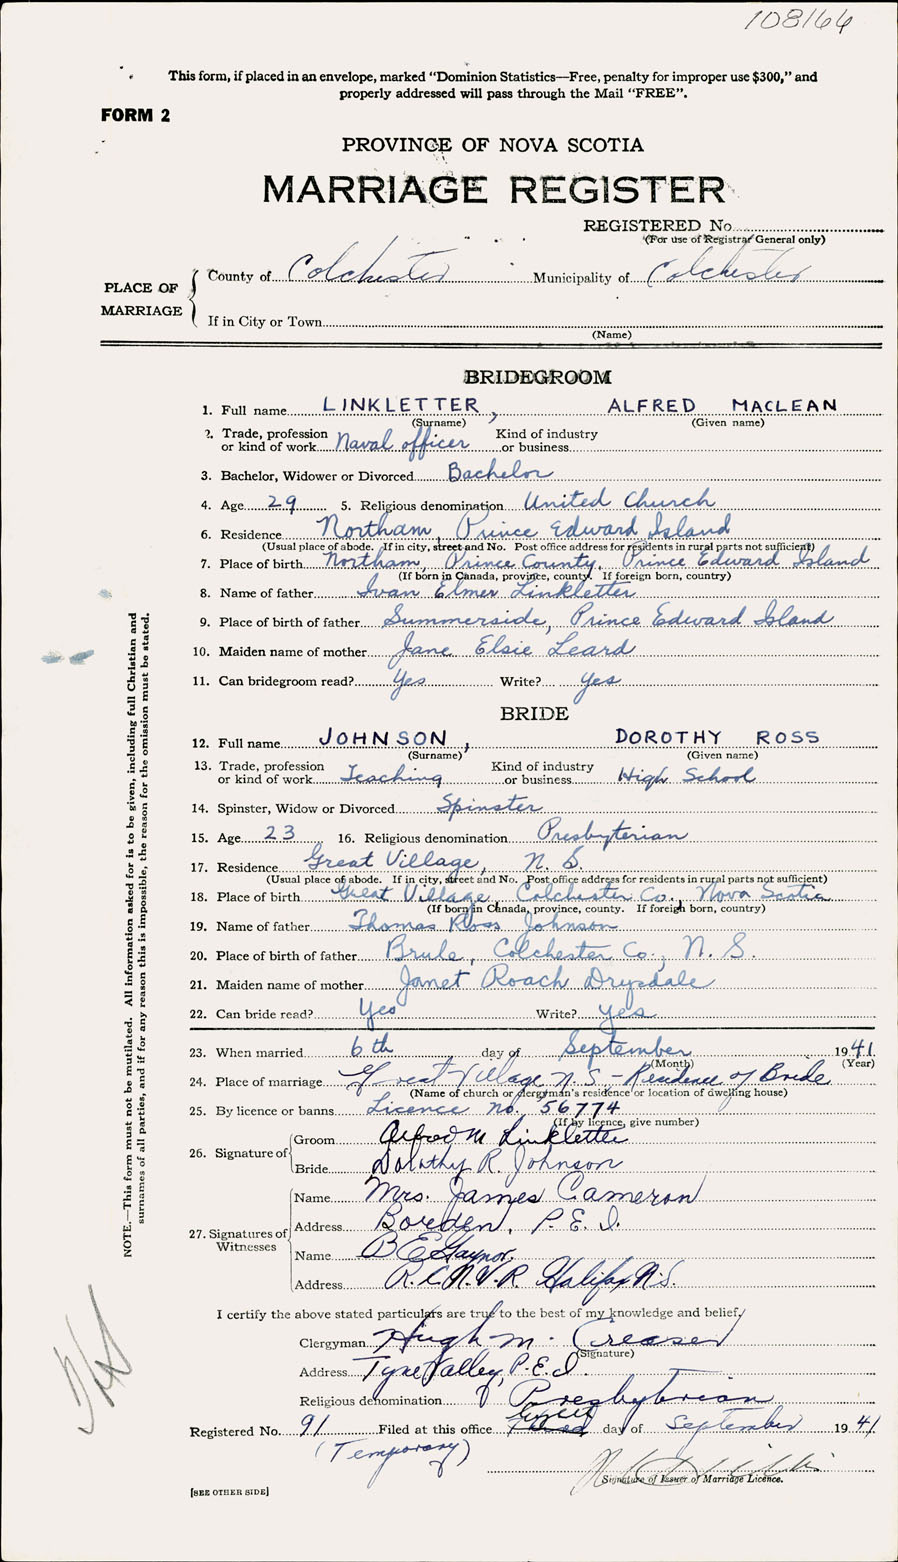 108166
This form, if placed in an envelope, marked "Dominion Statistics—Free, penalty for improper use $300," and
properly addressed will pass through the Mail "FREE".
FORM 2
PROVINCE OF NOVA SCOTIA
MARRIAGE REGISTER
REGISTERED No.
(For use of Registrar General only)
PLACE OF MARRIAGE
County of Colchester Municipality of Colchester
If in City or Town
(Name)
BRIDEGROOM
1. Full name LINKLETTER, ALFRED MACLEAN
(Surname) (Given name)
2. Trade, profession or kind of work Naval officer Kind of industry or business
3. Bachelor, Widower or Divorced Bachelor
4. Age 29 5. Religious denomination United Church
6. Residence Northam, Prince Edward Island
(Usual place of abode. If in city, street and No. Post office address for residents in rural parts not sufficient)
7. Place of birth Northam, Prince County, Prince Edward Island
(If born in Canada, province, county. If foreign born, country)
8. Name of father Ivan Elmer Linkletter
9. Place of birth of father Summerside, Prince Edward Island
10. Maiden name of mother Jane Elsie Leard
11. Can bridegroom read? Yes Write? Yes
BRIDE
12. Full name JOHNSON, DOROTHY ROSS
(Surname) (Given name)
13. Trade, profession or kind of work Teaching Kind of industry or business High School
14. Spinster, Widow or Divorced Spinster
15. Age 23 16. Religious denomination Presbyterian
17. Residence Great Village, N. S.
(Usual place of abode. If in city, street and No. Post office address for residents in rural parts not sufficient)
18. Place of birth Great Village, Colchester Co., Nova Scotia
(If born in Canada, province, county. If foreign born, country)
19. Name of father Thomas Ross Johnson
20. Place of birth of father Brule, Colchester Co., N. S.
21. Maiden name of mother Janet Roach Drysdale
22. Can bride read? Yes Write? Yes
23. When married 6th day of September 1941
(Month) (Year)
24. Place of marriage Great Village N.S. - Residence of Bride
(Name of church or clergyman's residence or location of dwelling house)
25. By licence or banns Licence no. 56774
(If by licence, give number)
26. Signature of
Groom Alfred M Linkletter
Bride Dorothy R. Johnson
27. Signatures of Witnesses
Name Mrs. James Cameron
Address Borden, P. E. I.
Name B E Gaynor.
Address R.C.N.V.R. Halifax N.S.
I certify the above stated particulars are true to the best of my knowledge and belief,
Clergyman Hugh M. Creaser
(Signature)
Address Tyne Valley, P.E.I.
Religious denomination Presbyterian
Registered No. 91 Filed at this office day of September 1941
(Temporary)
Signature of Issuer of Marriage Licence.
[SEE OTHER SIDE]
NOTE.—This form must not be mutilated. All information asked for is to be given, including full Christian and
surnames of all parties, and if for any reason this is impossible, the reason for the omission must be stated.